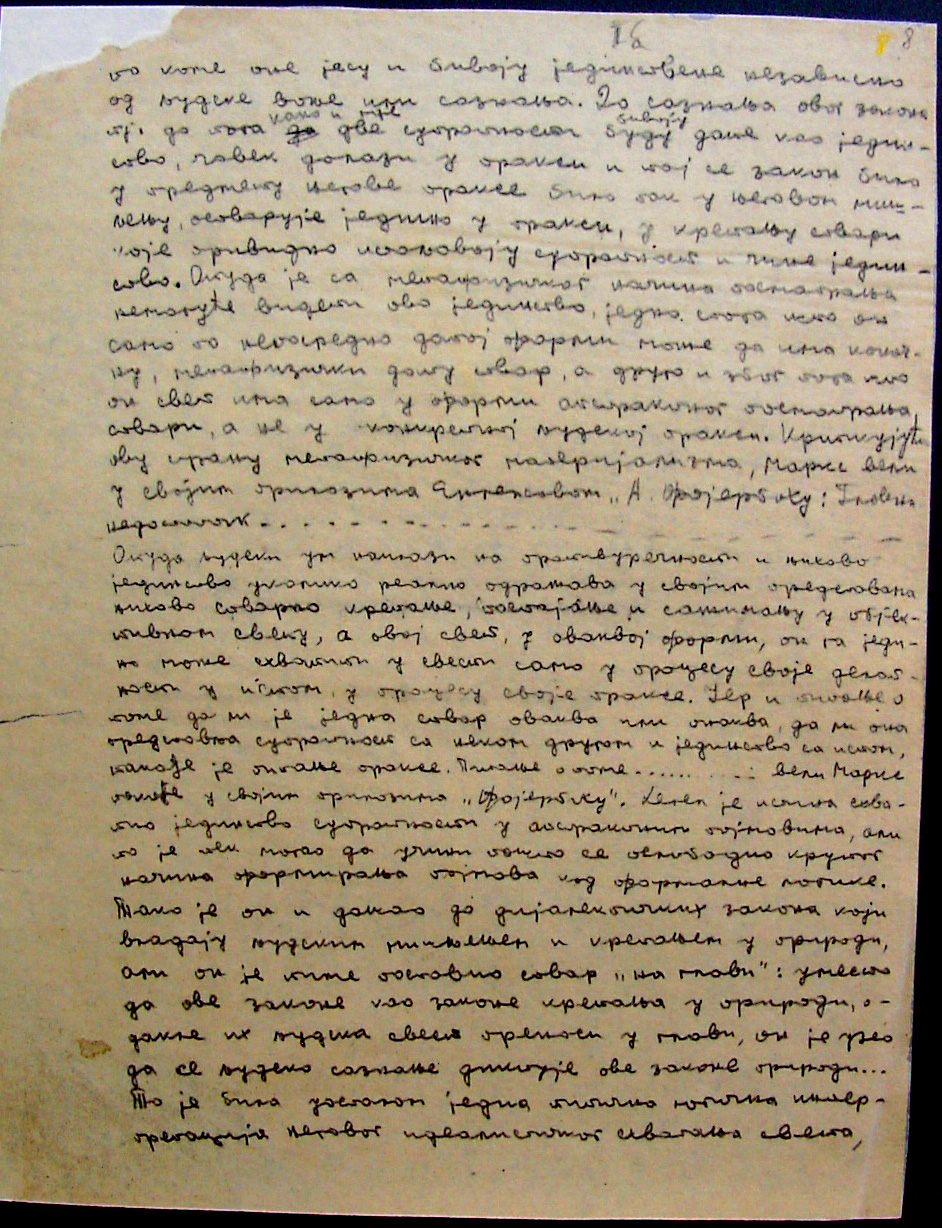 16
8
по коме оне јесу и бивају јединствене независно
од људске воље или сазнања. До сазнања овог закона
тј. до тога како и где две супротности бивају буду дане као једин-
ство, човек долази у пракси и тај се закон било
у предмету његове праксе било пак у његовом миш-
љењу, остварује једино у пракси, у кретању ствари
које привидно испољавају супротност и чине једин-
ство. Отуда је са метафизичког начина посматрања
немогуће видети ово јединство, једно стога што он
само по непосредно датој форми може да има конач-
ну, метафизички дату ствар, а друго и због тога што
он свет има само у форми абстрактног посматрања,
ствари, а не у конкретној људској пракси. Критикујући
ову страну метафизичког материјализма, Маркс вели
у својим прилозима Енгелсовом „А. Фојербаху: Главни
недостатак . . . . . . . . . . . .
Отуда људски ум наилази на противуречности и њихово
јединство уколико реално одражава у својим представама
њихово стварно кретање, постајање и сажимању у објек-
тивном свету, а овај свет, у оваквој форми, он га једи-
но може схватити у свести само у процесу своје делат-
ности у истом, у процесу своје праксе. Јер и питање о
томе да ли је једна ствар оваква или онаква, да ли она
представља супротност са неком другом и јединство са истом,
такође је питање праксе. Питање о томе . . . . . . . . . вели Маркс
такође у својим прилозима „Фојербаху". Хегел је истина схва-
тио јединство супротности у абстрактним појмовима, али
то је тек могао да учини пошто се ослободио крутог
начина формирања појмова код формалне логике.
Тако је он и дошао до дијалектичких закона који
владају људским мишљењем и кретањем у природи,
али он је тиме поставио ствар „на глави": уместо
да ове законе као законе кретања у природи, о-
дакле их људска свест преноси у глави, он је узео
да се људско сазнање диктује ове законе природи...
То је била уосталом једна типична логична интер-
претација његовог идеалистичког схватања света,